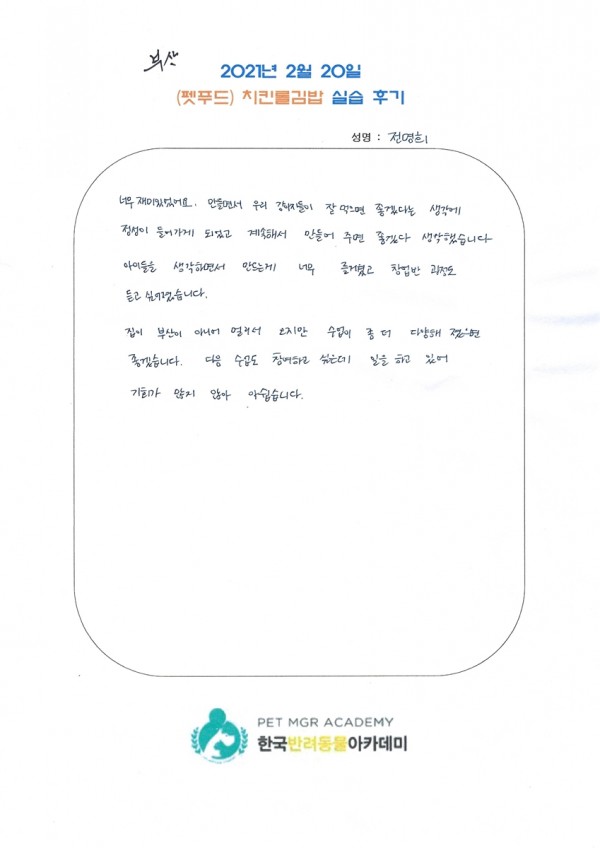 부산
2021년 2월 20일
(펫푸드) 치킨롤김밥 실습 후기
성명 : 전명희
너무 재미있었어요. 만들면서 우리 강아지들이 잘 먹으면 좋겠다는 생각에
정성이 들어가게 되었고 계속해서 만들어 주면 좋겠다 생각했습니다
아이들을 생각하면서 만드는게 너무 즐거웠고 창업반 과정도
듣고 싶어졌습니다.
집이 부산이 아니어 멀리서 오지만 수업이 좀 더 다양해 졌으면
좋겠습니다. 다음 수업도 참여하고 싶은데 일을 하고 있어
기회가 많지 않아 아쉽습니다.
PET MGR ACADEMY
한국반려동물아카데미